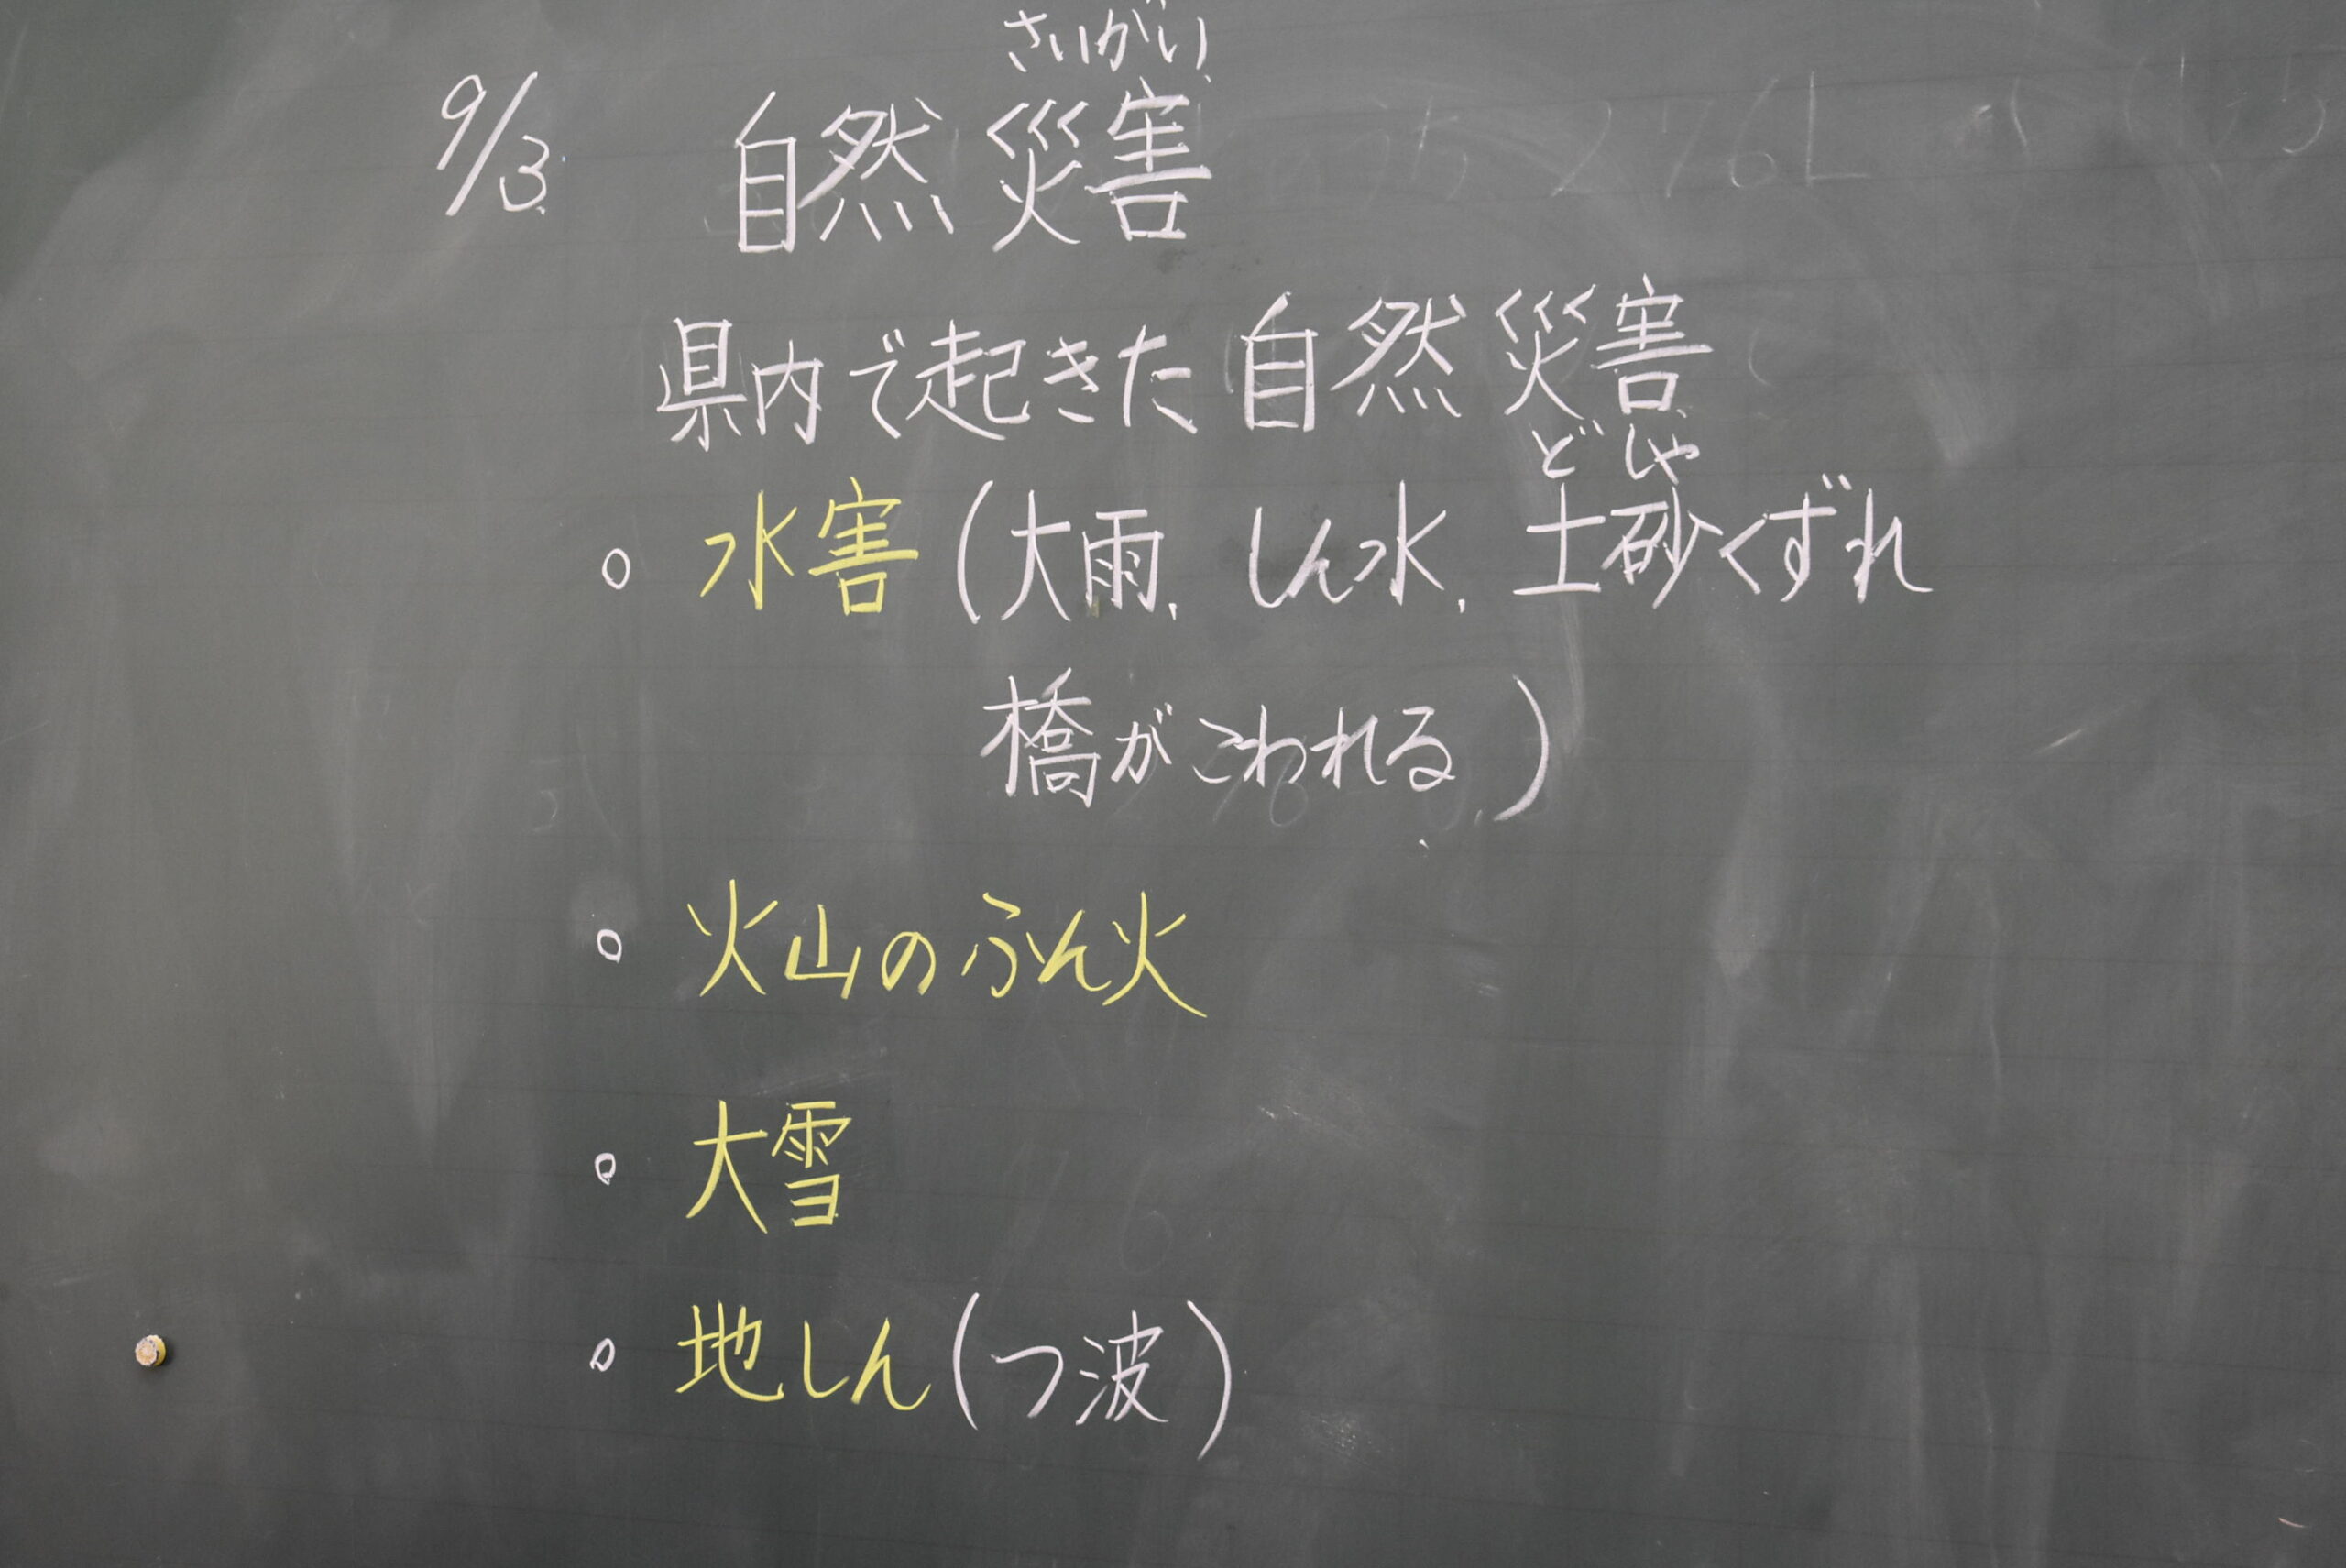 さいがい
9/3 自然災害
県内で起きた自然災害
どしゃ
○ 水害(大雨、しん水、土砂くずれ
橋がこわれる)
○ 火山のふん火
○ 大雪
○ 地しん(つ波)